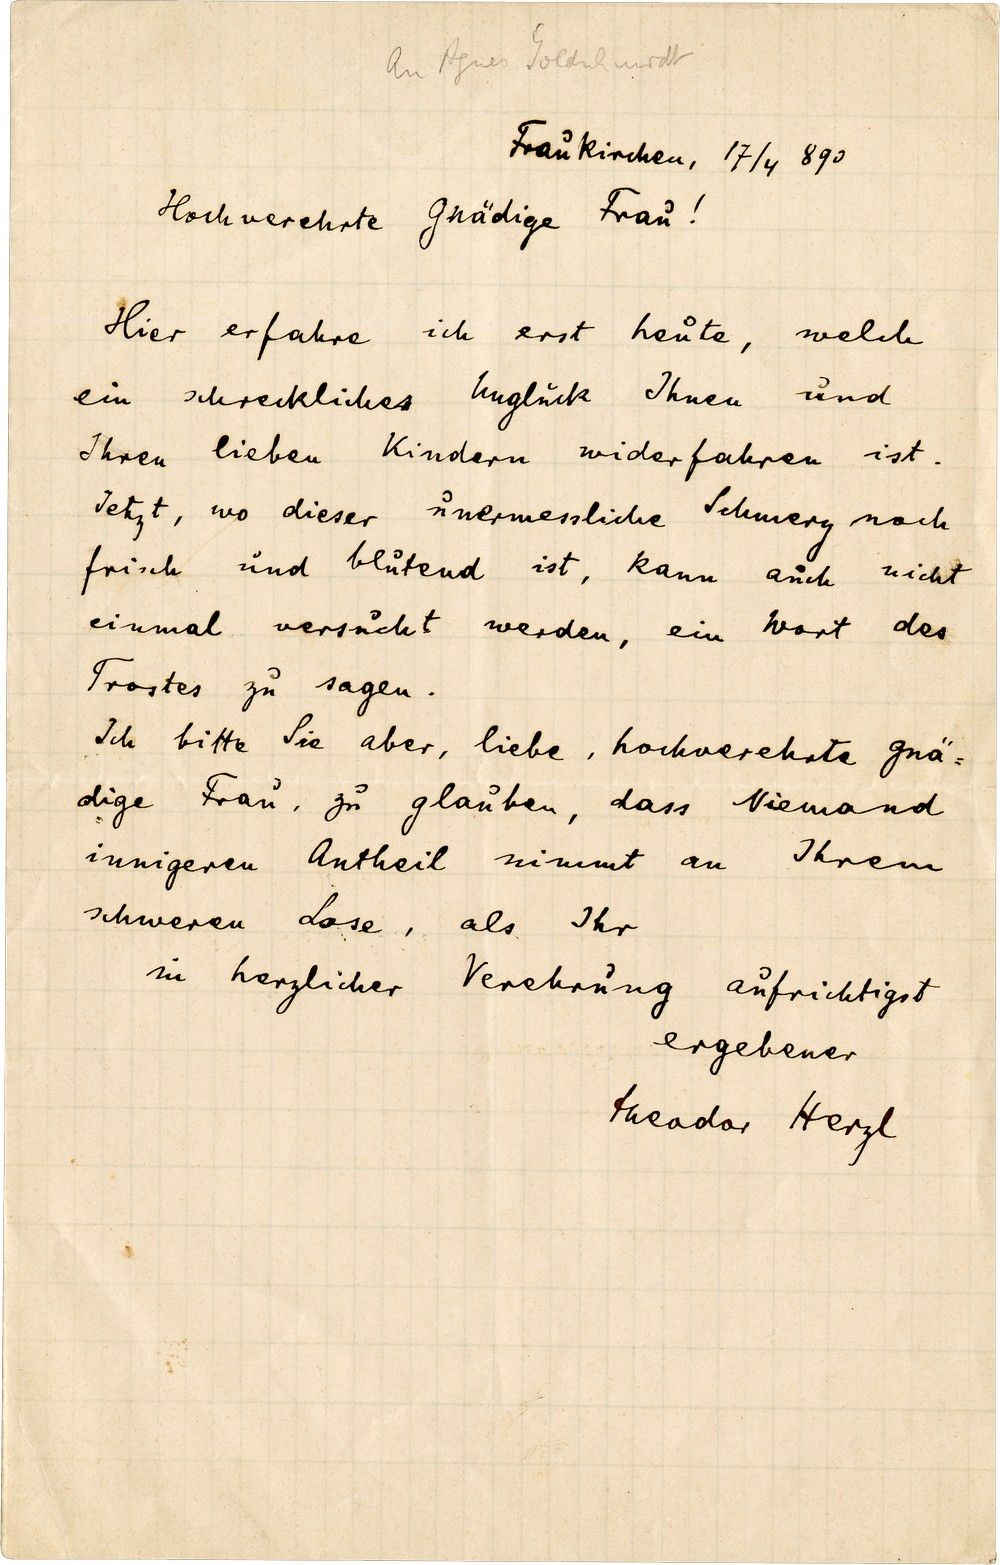 An Agnes
Fraukirchen, 17/4 890
Hochverehrte Gnädige Frau!
Hier erfahre ich erst heute, welch
ein schreckliches Unglück Ihnen und
Ihren lieben Kindern widerfahren ist.
Jetzt, wo dieser unermessliche Schmerz noch
frisch und blutend ist, kann auch nicht
einmal versucht werden, ein Wort des
Trostes zu sagen.
Ich bitte Sie aber, liebe, hochverehrte gnä=
dige Frau, zu glauben, dass Niemand
innigeren Antheil nimmt an Ihrem
schweren Lose, als Ihr
in herzlicher Verehrung aufrichtigst
ergebener
Theodor Herzl